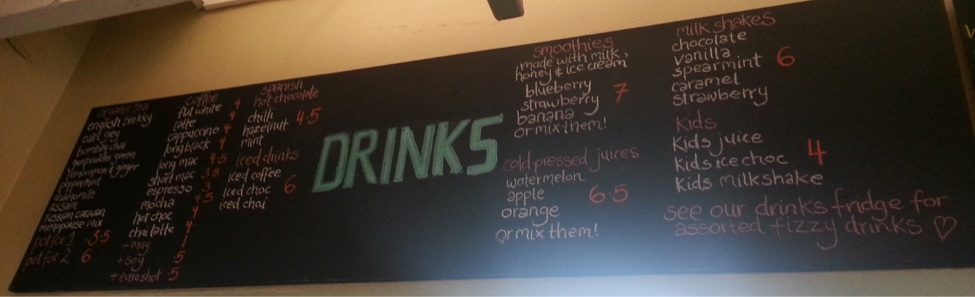 organic tea
english brekky
earl grey
bombay chai
gunpowder green
lemongrass & ginger
peppermint
chamomile
assam
russian caravan
menopause mix
pot for 1 3.5
pot for 2 6
coffee
flat white 4
latte 4
cappuccino 4
long black 4
long mac 4.5
short mac 3.8
espresso 3
mocha 4.5
hot choc 4
chai latte 4
+ mug 1
+ soy .5
+ extra shot .5
spanish
hot chocolate
chilli
hazelnut 4.5
mint
iced drinks
iced coffee
iced choc 6
iced chai
DRINKS
smoothies
made with milk,
honey & ice cream
blueberry
strawberry 7
banana
or mix them!
cold pressed juices
watermelon
apple 6.5
orange
or mix them!
milkshakes
chocolate
vanilla
spearmint 6
caramel
strawberry
Kids
Kids juice
Kids ice choc 4
Kids milkshake
see our drinks fridge for
assorted fizzy drinks ♡